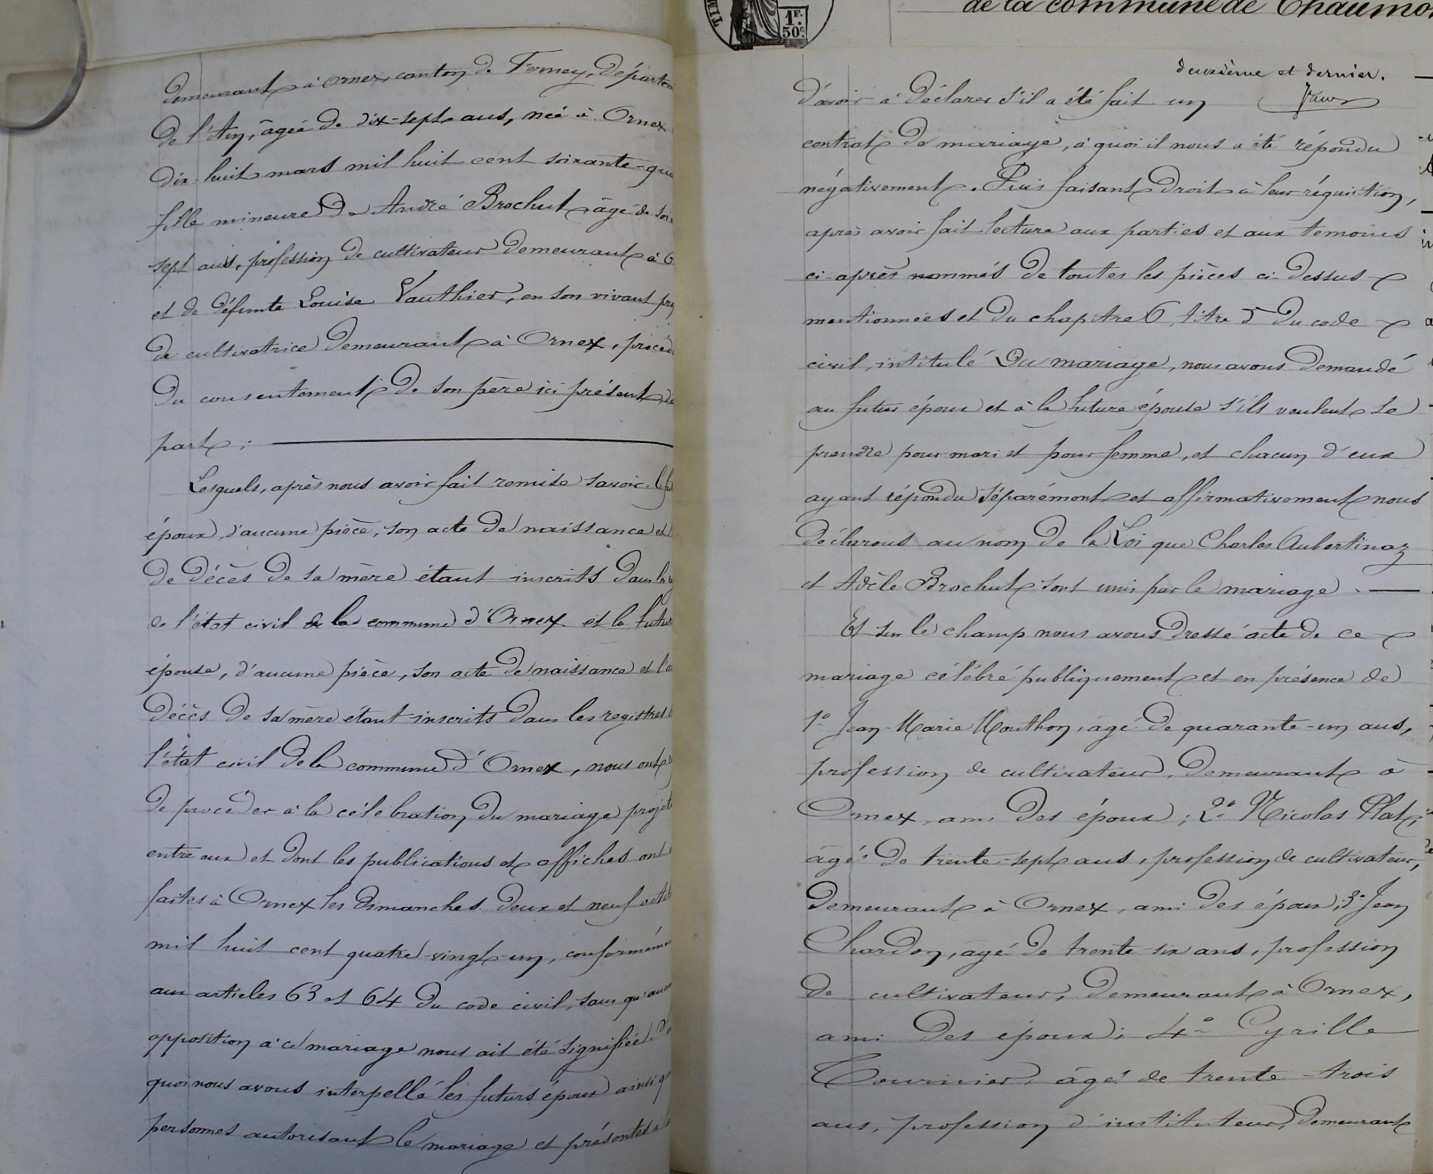 demeurant à Ornex, canton de Ferney, départem
de l'Ain, âgée de dix-sept ans, née à Ornex
dix-huit mars mil huit cent soixante-qua
fille mineure de André Brochut, âgé de soix
sept ans, profession de cultivateur demeurant à O
et de défunte Louise Vauthier, en son vivant pr
de cultivatrice demeurant à Ornex, procéd
du consentement de son père ici présent, d
part ;
Lesquels, après nous avoir fait remise savoir: le fu
époux, d'aucune pièce, son acte de naissance et
de décès de sa mère étant inscrits dans les
de l'état civil de la commune d'Ornex et la futur
épouse, d'aucune pièce, son acte de naissance et l'a
décès de sa mère étant inscrits dans les registres
l'état civil de la commune d'Ornex, nous ont
de procéder à la célébration du mariage projet
entre eux et dont les publications et affiches ont
faites à Ornex les dimanches deux et neuf octo
mil huit cent quatre-vingt-un, conformém
aux articles 63 et 64 du code civil, sans qu'aucu
opposition à ce mariage nous ait été signifiée. De
quoi nous avons interpellé les futurs époux ainsi q
personnes autorisant le mariage et présentes
TIM
1F.
50c.
de la commune de Chaumon
deuxième et dernier.
d'avoir à déclarer s'il a été fait un
contrat de mariage, à quoi il nous a été répondu
négativement. Puis faisant droit à leur réquisition,
après avoir fait lecture aux parties et aux témoins
ci-après nommés de toutes les pièces ci-dessus
mentionnées et du chapitre 6, titre 5 du code
civil, intitulé Du mariage, nous avons demandé
au futur époux et à la future épouse s'ils veulent se
prendre pour mari et pour femme, et chacun d'eux
ayant répondu séparément et affirmativement nous
déclarons au nom de la Loi que Charles Aubertinaz
et Adèle Brochut sont unis par le mariage.
Et sur le champ nous avons dressé acte de ce
mariage célébré publiquement et en présence de
1º Jean-Marie Mouthon, âgé de quarante-un ans,
profession de cultivateur, demeurant à
Ornex, ami des époux ; 2º Nicolas Plat,
âgé de trente-sept ans, profession de cultivateur,
demeurant à Ornex, ami des époux, 3º Jean
Chardon, âgé de trente six ans, profession
de cultivateur, demeurant à Ornex,
ami des époux ; 4º Cyrille
Tournier, âgé de trente-trois
ans, profession d'instituteur, demeurant